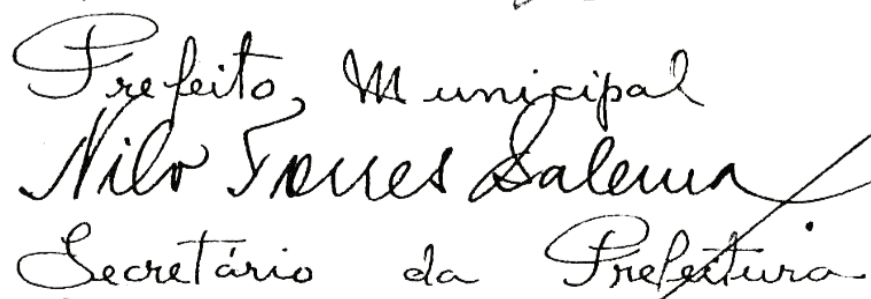 Prefeito, Municipal
Nilo Torres Salema
Secretário da Prefeitura